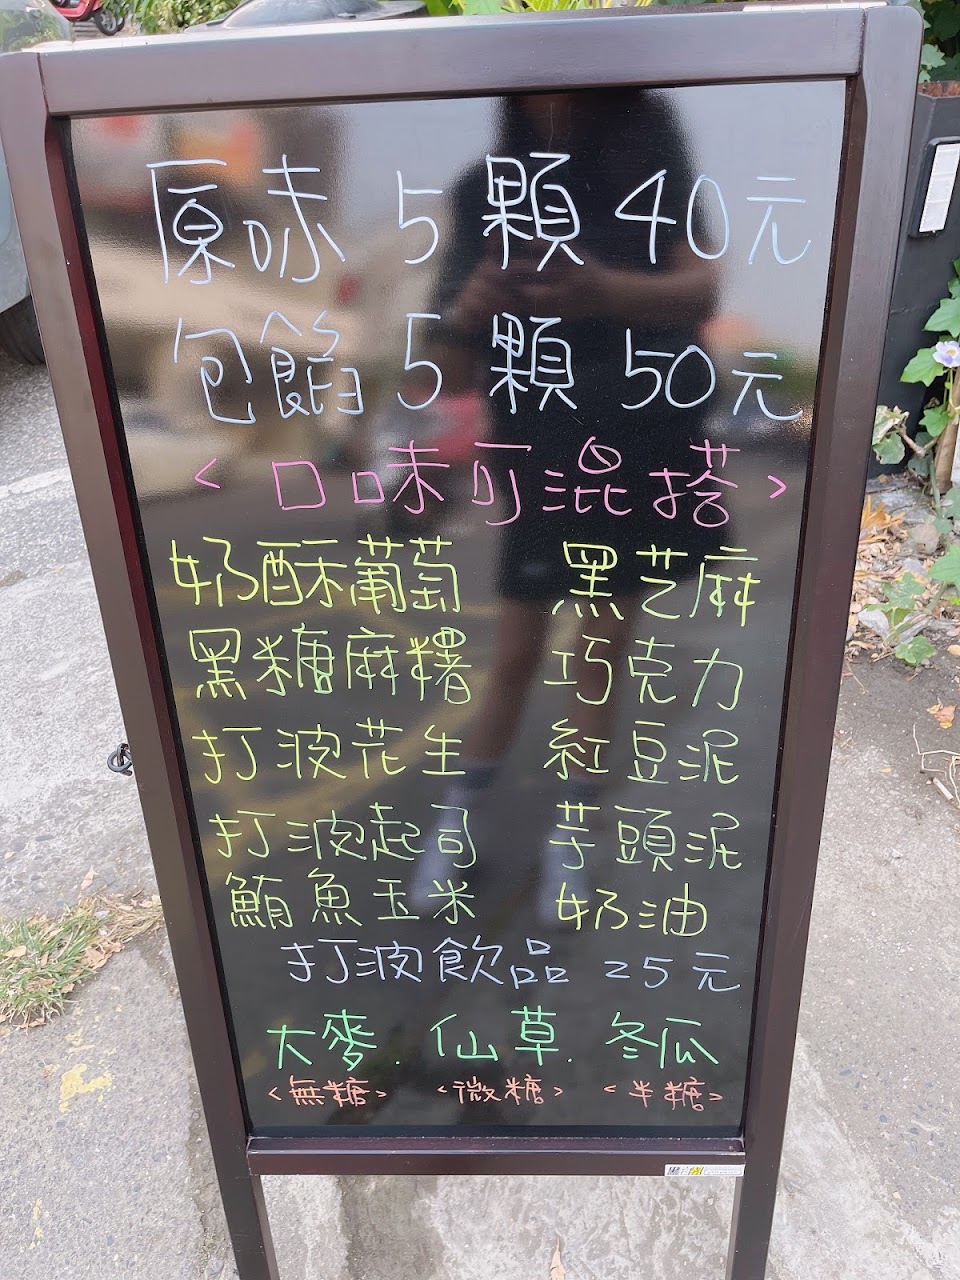 原味 5 顆 40元
包餡 5 顆 50元
<口味可混搭>
奶酥葡萄 黑芝麻
黑糖麻糬 巧克力
打波花生 紅豆泥
打波起司 芋頭泥
鮪魚玉米 奶油
打波飲品 25元
大麥. 仙草. 冬瓜
<無糖> <微糖> <半糖>